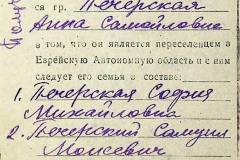 ся гр. Печерская
Анна Самойловна
в том, что он является переселенцем в
Еврейскую Автономную область и с ним
следует его семья в составе:
1. Печерская София
Михайловна
2. Печерский Самуил
Моисевич